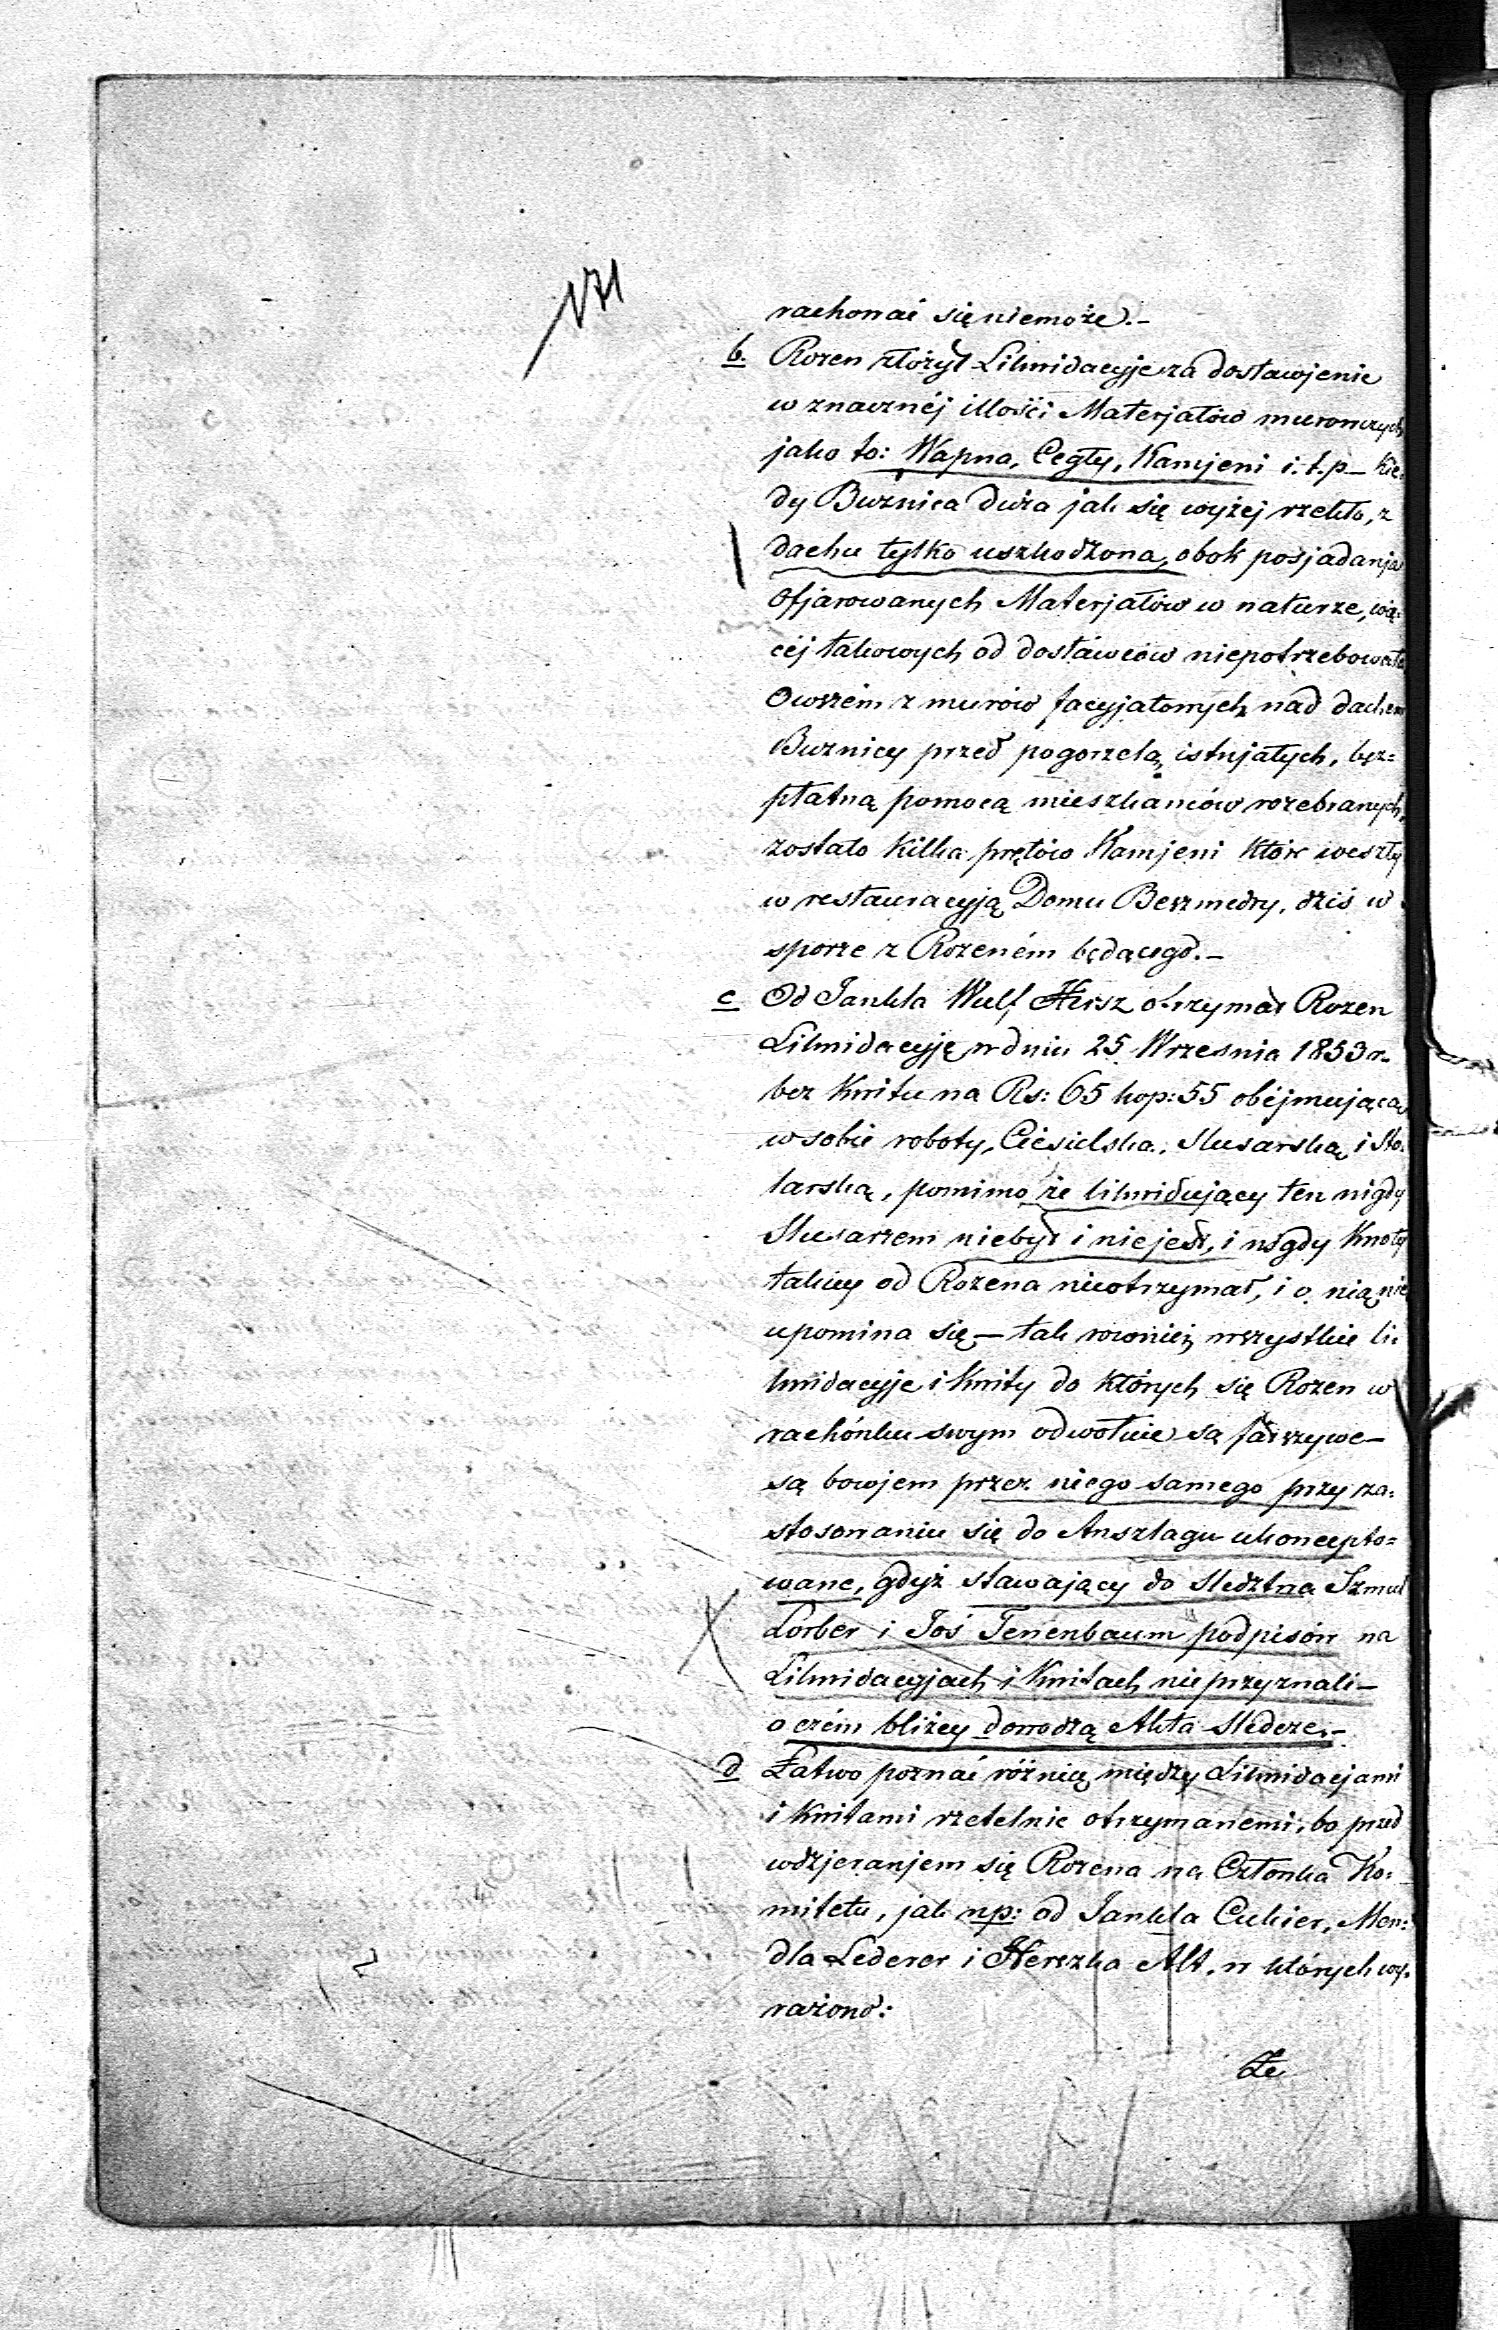 171
rachować się niemoże.–
b. Rozen złożył Likwidacyje za dostawjenie
w znacznéj illości Materjałów murowczych
jako to: Wapna, Cegły, Kamjeni i.t.p – Kie-
dy Bużnica duża jak się wyżej rzekło, z
dachu tylko uszkodzona, obok posjadanja
Ofjarowanych Materjałów w naturze, wię-
céj takowych od dostawców niepotrzebowała
Owszém z murów facyjatowych nad dachem
Bużnicy przed pogorzelą istnjałych, bez=
płatną pomocą mieszkanców rozebranych,
zostało kilka prętów Kamjeni które weszły
w restauracyją Domu Beszmedry, dziś w
sporze z Rozeném będącego.–
c Od Jankla Wulf Hersz otrzymał Rozen
Likwidacyję w dniu 25 Wrzesnia 1853 r.
bez Kwitu na Rs: 65 kop: 55 obéjmującą
w sobie roboty, Ciesielską, Slusarską i Sto-
larską, pomimo że likwidujący ten nigdy
Slusarzem niebył i nie jest, i nigdy Kwoty
takiey od Rozena nieotrzymał, i o nią nie
upomina się – tak rowoniéz wszystkie li-
kwidacyje i Kwity do których się Rozen w
rachónku swym odwołuie są fałszywe –
są bowjem przez niego samego przy za-
stosowaniu się do Anszlagu ukoncepto=
wane, gdyż stawający do sledztwa Szmul
Lorber i Joś Tenenbaum podpisów na
Likwidacyjach i Kwitach nie przyznali –
o czém bliżey dowodzą Akta Sledcze.–
d Łatwo poznać różnicę między Likwidacjami
i Kwitami rzetelnie otrzymanemi, bo przed
wdzjeranjem się Rozena na Członka Ko-
mitetu, jak np: od Jankla Cukier, Men-
dla Lederer i Herszka Alt, w których wy-
rażono:
Że